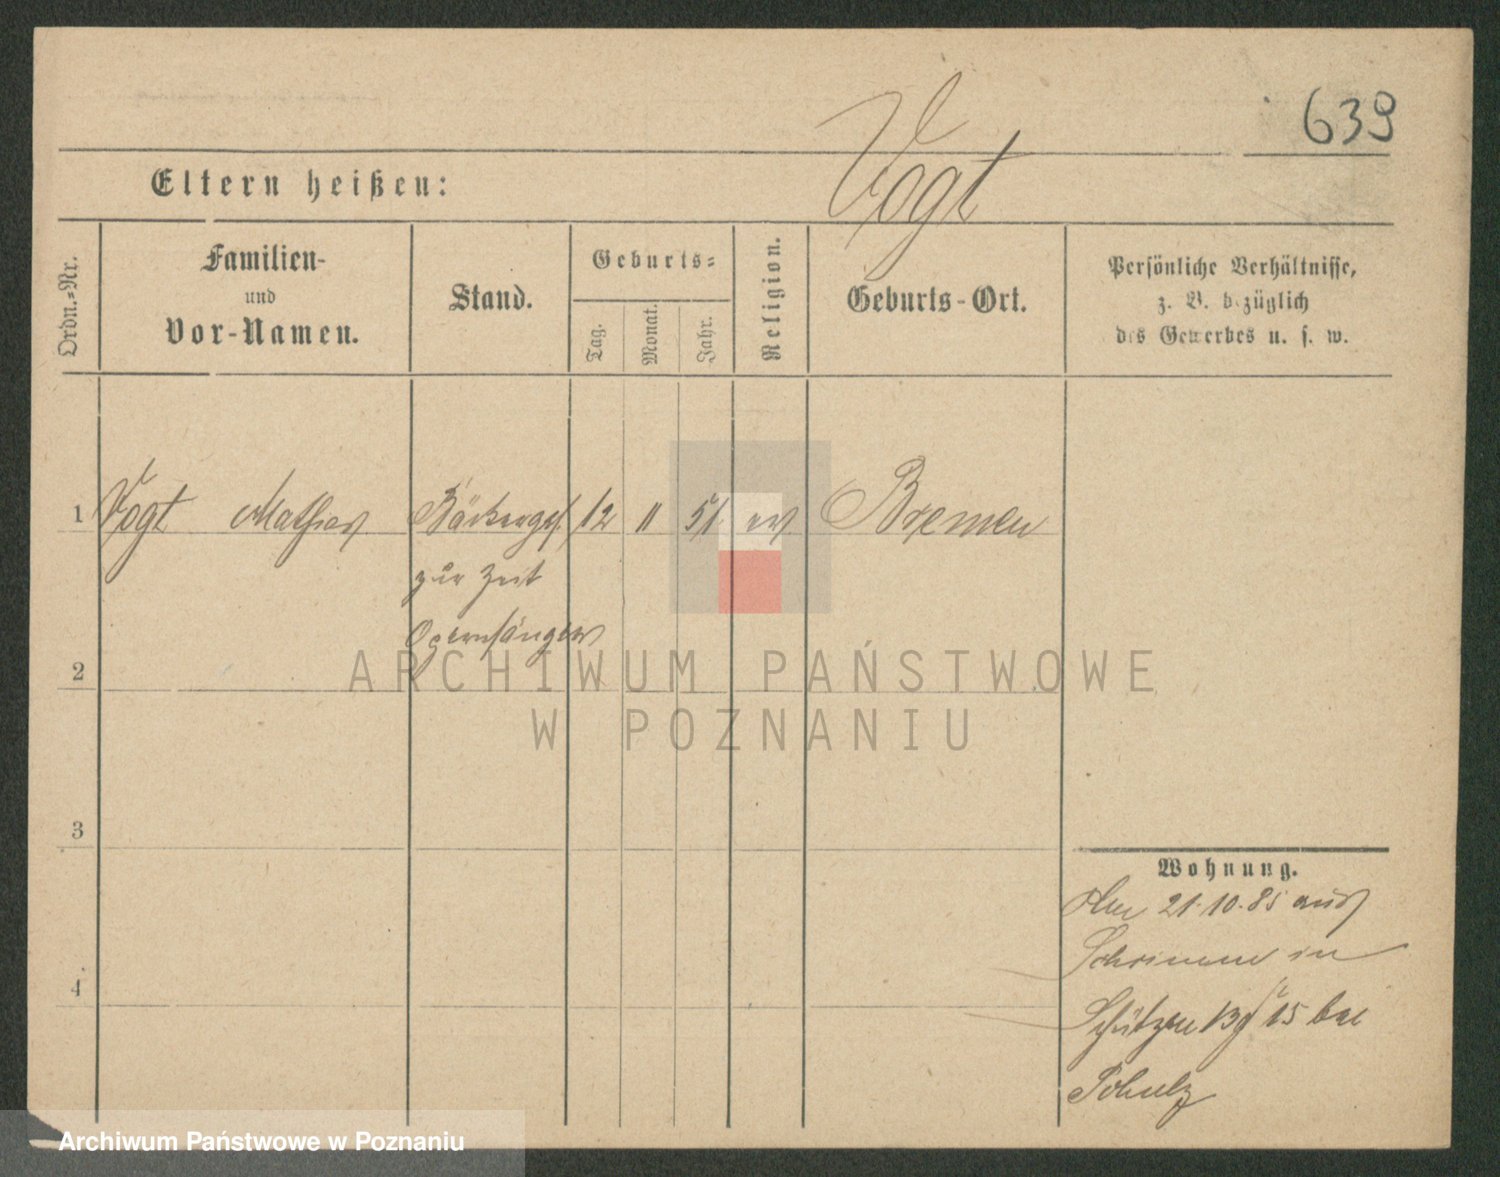 639
Vogt
Eltern heißen:
Ordn.-Nr.
Familien-
und
Vor-Namen.
Stand.
Geburts-
Tag.
Monat.
Jahr.
Religion.
Geburts-Ort.
Persönliche Verhältnisse,
z. B. bezüglich
des Gewerbes u. s. w.
1 Vogt Mathias Bäckerges. 12 11 51 ev Bremen
zur Zeit
Opernsänger
2
3
4
Wohnung.
Am 21.10.85 aus
Schrimm in
Schützen 15 bei
Schulz
ARCHIWUM PAŃSTWOWE
W POZNANIU
Archiwum Państwowe w Poznaniu